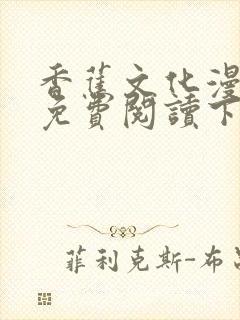 香蕉文化漫
免費閱讀下
菲利克斯-布呂